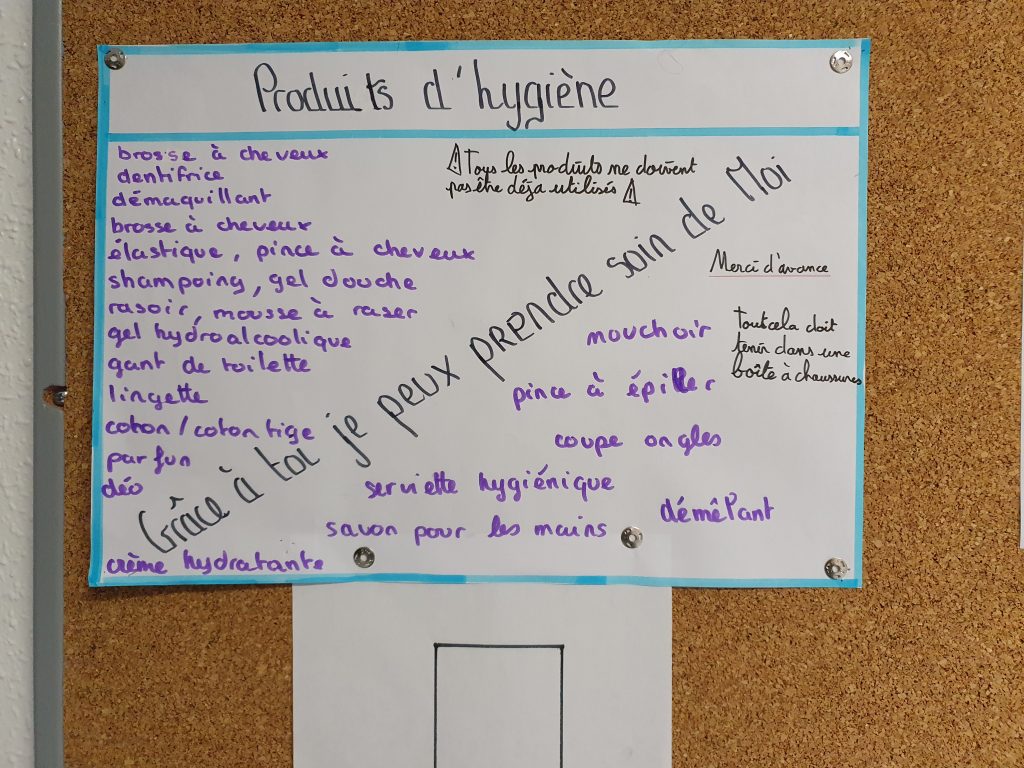 Produits d'hygiène
brosse à cheveux
dentifrice
démaquillant
brosse à cheveux
élastique, pince à cheveux
shampoing, gel douche
rasoir, mousse à raser
gel hydroalcoolique
gant de toilette
lingette
coton/coton tige
parfun
déo
crème hydratante
⚠ Tous les produits ne doivent
pas être déja utilisés ⚠
Grâce à toi je peux prendre soin de Moi
Merci d'avance
Tout cela doit
tenir dans une
boîte à chaussures
mouchoir
pince à épiller
coupe ongles
serviette hygiénique
démêlant
savon pour les mains